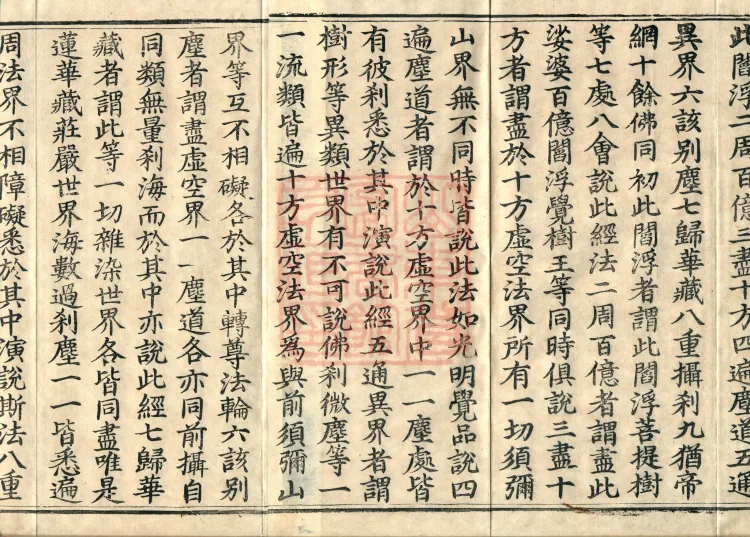 此閻浮二周百億三盡十方四遍塵道五通
異界六該別塵七歸華藏八重攝刹九猶帝
網十餘佛同初此閻浮者謂此閻浮菩提樹
等七處八會說此經法二周百億者謂盡此
娑婆百億閻浮覺樹王等同時俱說三盡十
方者謂盡於十方虛空法界所有一切須彌
山界無不同時皆說此法如光明覺品說四
遍塵道者謂於十方虛空界中一一塵處皆
有彼刹悉於其中演說此經五通異界者謂
樹形等異類世界有不可說佛刹微塵等一
一流類皆遍十方虛空法界為與前須彌山
界等互不相礙各於其中轉尊法輪六該別
塵者謂盡虛空界一一塵道各亦同前攝自
同類無量刹海而於其中亦說此經七歸華
藏者謂此等一切雜染世界各皆同盡唯是
蓮華藏莊嚴世界海數過刹塵一一皆悉遍
周法界不相障礙悉於其中演說斯法八重